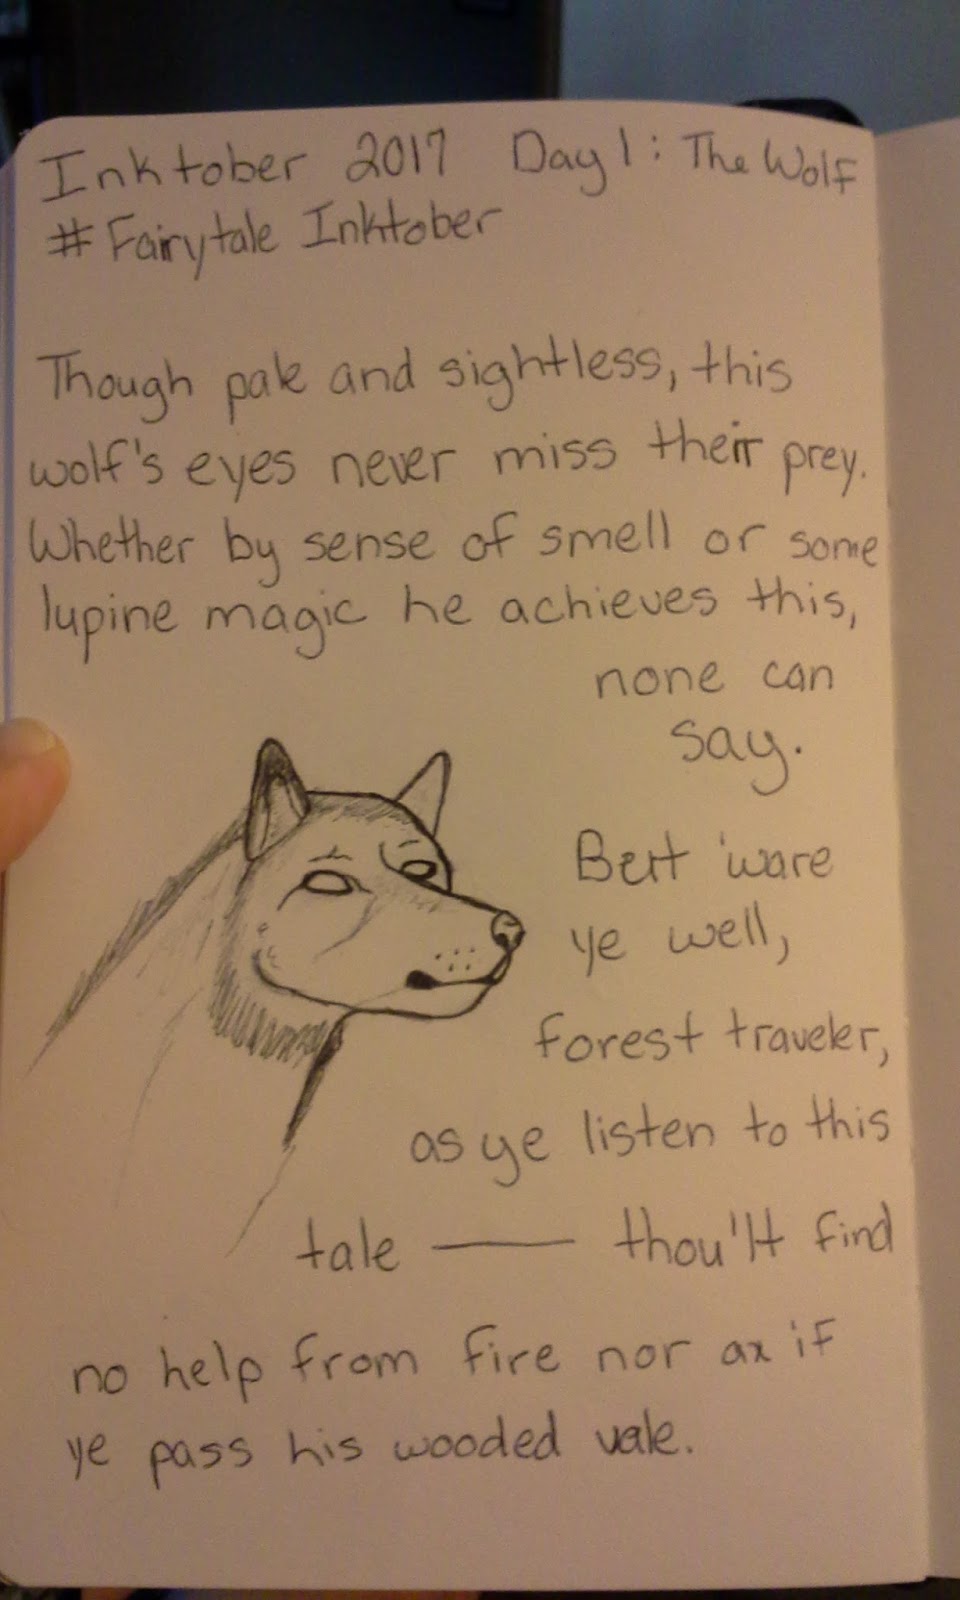 Inktober 2017 Day 1: The Wolf
#Fairytale Inktober
Though pale and sightless, this
wolf's eyes never miss their prey.
Whether by sense of smell or some
lupine magic he achieves this,
none can
say.
'ware
ye well,
forest traveler,
as ye listen to this
tale — thou'lt find
no help from fire nor ax if
ye pass his wooded vale.